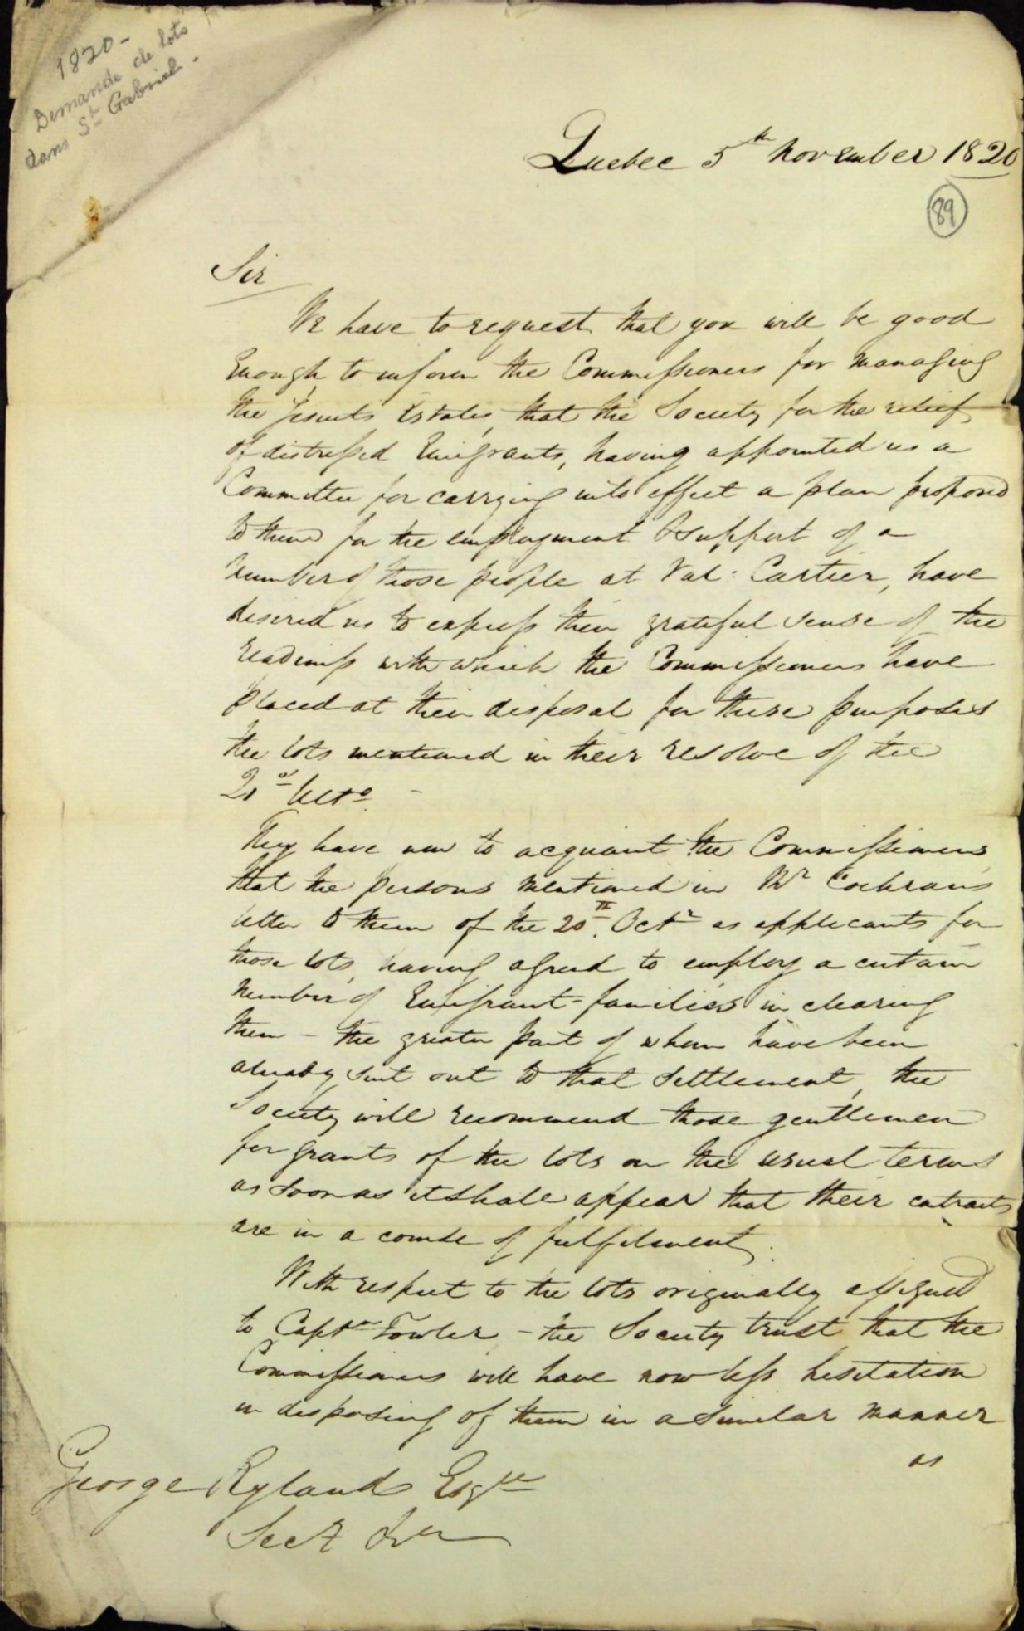 1820 -
Demande de lots
dans St Gabriel -
Quebec 5th November 1820
89
Sir
We have to request that you will be good
enough to inform the Commissioners for managing
the Jesuits Estates, that the Society for the relief
of distressed Emigrants, having appointed us a
Committee for carrying into effect a plan proposed
to them for the employment & support of a
number of those people at Val-Cartier, have
desired us to express their grateful sense of the
readiness with which the Commissioners have
placed at their disposal for these purposes
the lots mentioned in their resolve of the
21st Ulto. -
They have now to acquaint the Commissioners
that the persons mentioned in Mr Cochran's
letter to them of the 20th. Octr as applicants for
those lots, having agreed to employ a certain
number of Emigrant-families in clearing
them - the greater part of whom have been
already sent out to that settlement, the
Society will recommend those gentlemen
for grants of the lots on the usual terms
as soon as it shall appear that their cntracts
are in a course of fulfilment.
With respect to the lots originally assigned
to Captn Fowler - the Society trust that the
Commissioners will have now less hesitation
in disposing of them in a similar manner
as
George Ryland Esqre
Secy